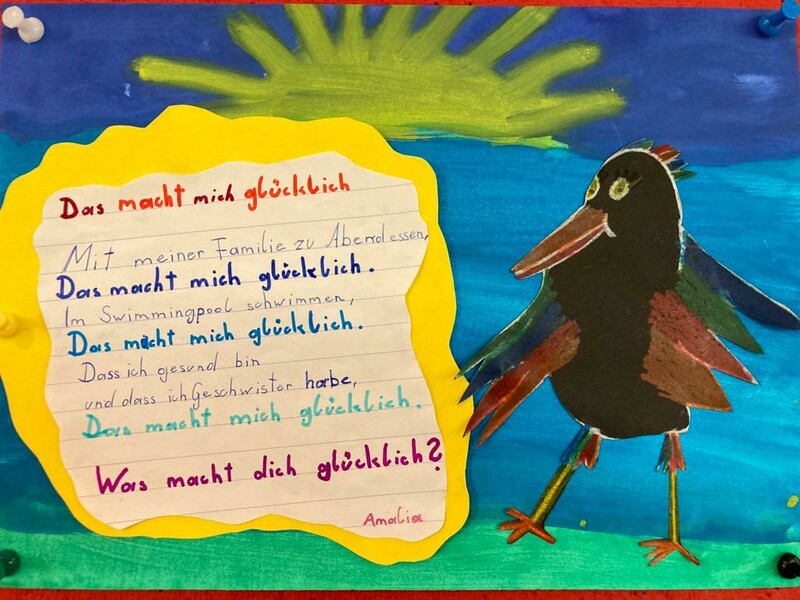 Das macht mich glücklich
Mit meiner Familie zu Abendessen,
Das macht mich glücklich.
Im Swimmingpool schwimmen,
Das macht mich glücklich.
Dass ich gesund bin
und dass ich Geschwister habe,
Das macht mich glücklich.
Was macht dich glücklich?
Amalia